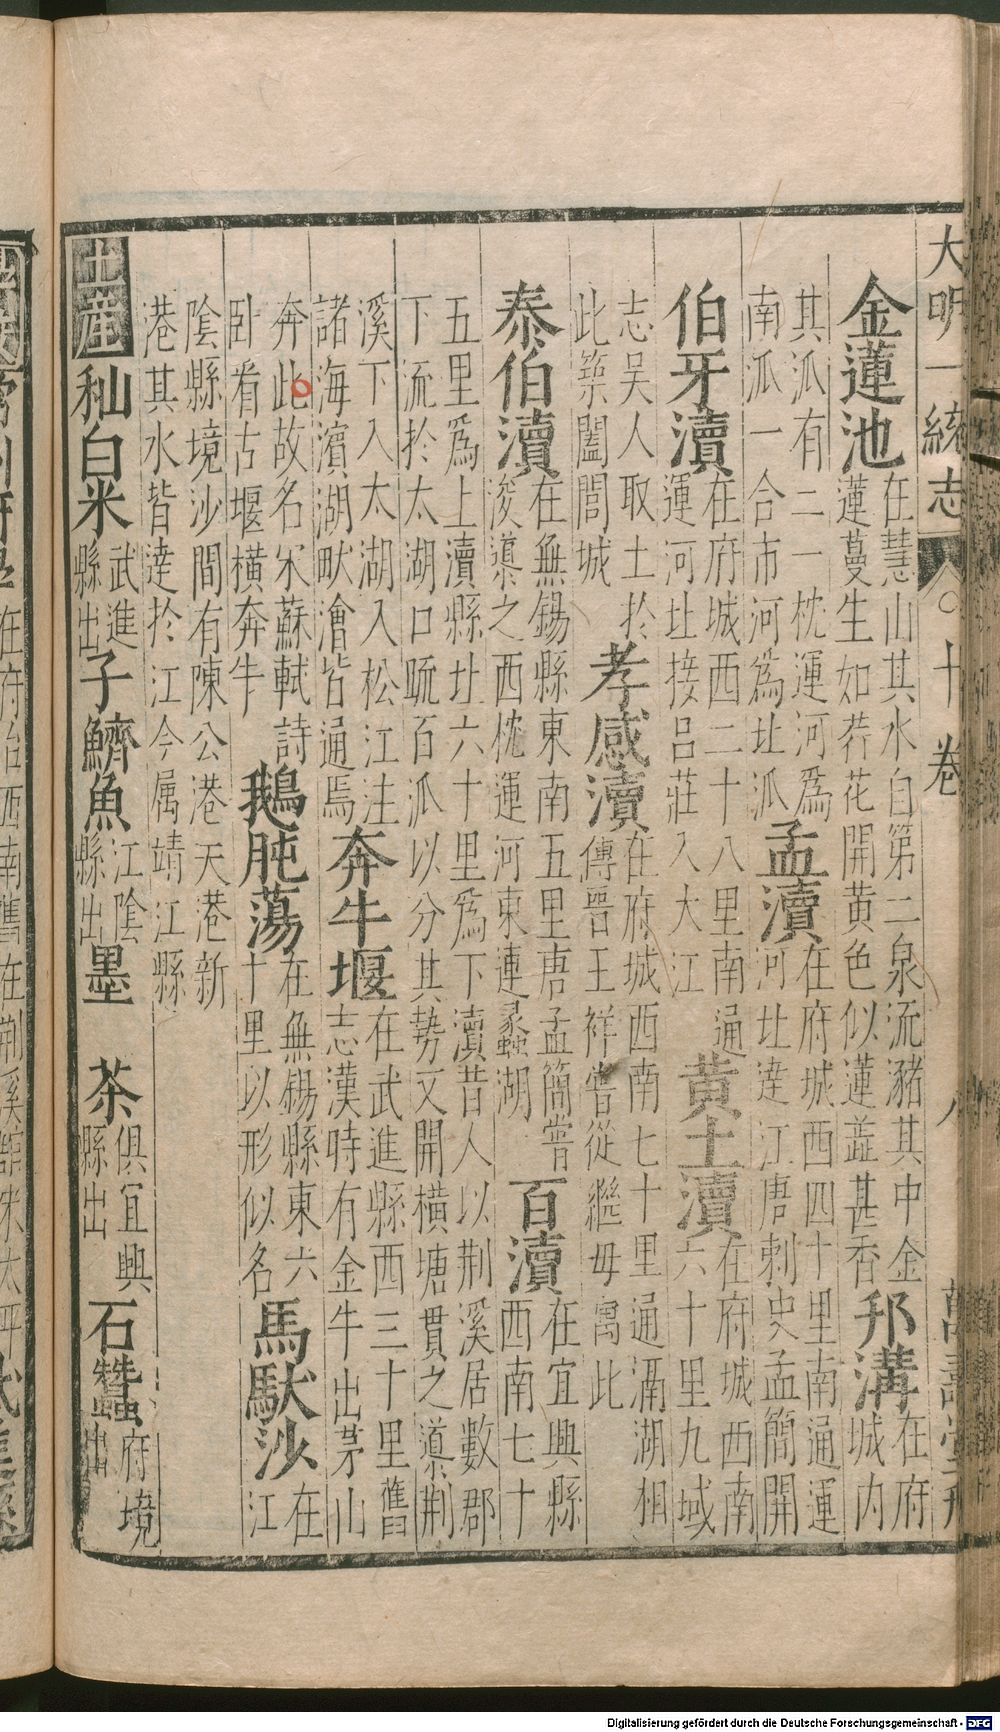 大明一統志 十卷 八 萬壽堂刊
金蓮池
在慧山其水自第二泉流豬其中金
蓮蔓生如荇花開黄色似蓮葢甚香
邗溝
在府
城内
其泒有二一枕運河爲
南泒一合市河爲北泒
孟瀆
在府城西四十里南通運
河北達江唐刺史孟簡開
伯牙瀆
在府城西二十八里南通
運河北接吕莊入大江
黄土瀆
在府城西南
六十里九域
志吴人取土於
此築闔閭城
孝感瀆
在府城西南七十里通滆湖相
傳晉王祥嘗從繼母寓此
泰伯瀆
在無錫縣東南五里唐孟簡嘗
浚導之西枕運河東連蠡湖
百瀆
在宜興縣
西南七十
五里爲上瀆縣北六十里爲下瀆昔人以荆溪居數郡
下流於太湖口疏百泒以分其勢又開横塘貫之導荆
溪下入太湖入松江注
諸海濵湖畎澮皆通焉
奔牛堰
在武進縣西三十里舊
志漢時有金牛出茅山
奔此故名宋蘇軾詩
卧看古堰横奔牛
鵝肫蕩
在無錫縣東六
十里以形似名
馬馱沙
在
江
陰縣境沙間有陳公港天港新
港其水皆達於江今属靖江縣
土産
秈白米
武進
縣出
子鱭魚
江陰
縣出
墨
茶
俱宜興
縣出
石蠶
府境
出
Digitalisierung gefördert durch die Deutsche Forschungsgemeinschaft - DFG